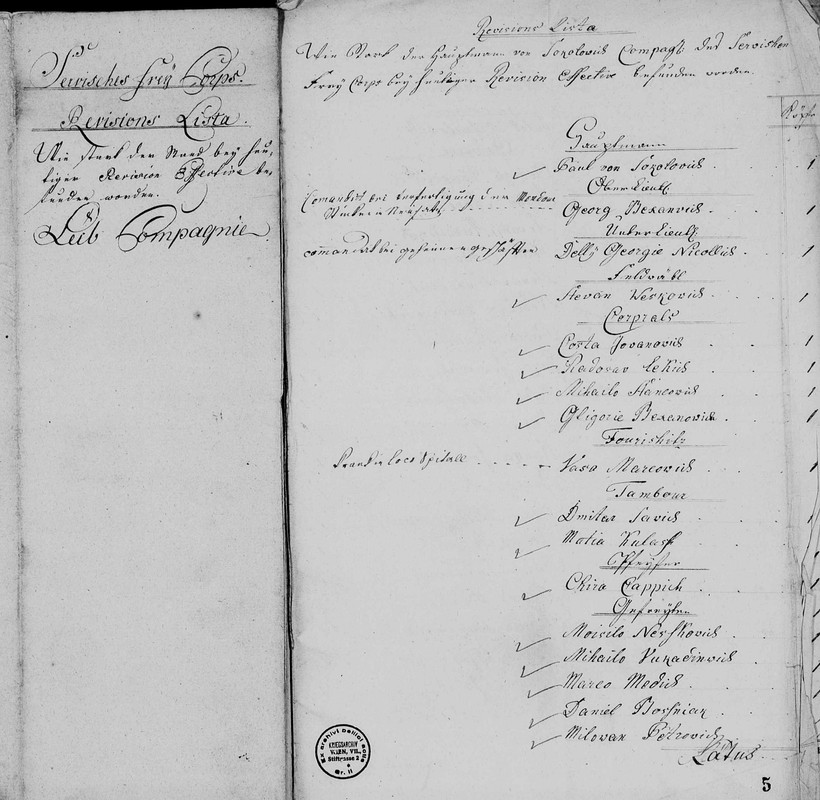 Servisches Frey Corps.
Revisions Lista
Wie stark der Stand bey heu-
tiger Revision Effective be-
funden worden.
Leib Compagnie
Revisions Lista
Wie Stark der Hauptmann von Sokolovich Compag: des Servischen
Frey Corps bey heutiger Revision Effective befunden worden.
Köpfe
Hauptmann
Paul von Sokolovich 1
Ober Lieut:
Comandirt bei Verfertigung der
Georg Bexanvich 1
Unter Lieut:
commandirt bei geheimen Geschäften Delly Georgie Nicollich 1
Feldwäbl
Stevan Veskovich 1
Corprals
Costa Jovanovich 1
Radosav Lekich 1
Mihailo Stancovich 1
Gligorie Bexanovich 1
Fourishitz
Krank in loco Spitall Vasa Marcovich 1
Tambour
Dmitar Savich 1
Matia Kulash 1
Pfeyfer
Chira Cappich 1
Gefreyten
Moisilo Neshkovich 1
Mihailo Vukadinvich 1
Marco Medich 1
Daniel Boshniak 1
Milovan Petrovich 1
Latus
Ex archivi bellici
KRIEGSARCHIV
WIEN, VII.,
Stiftgasse 2
Gr. II
5